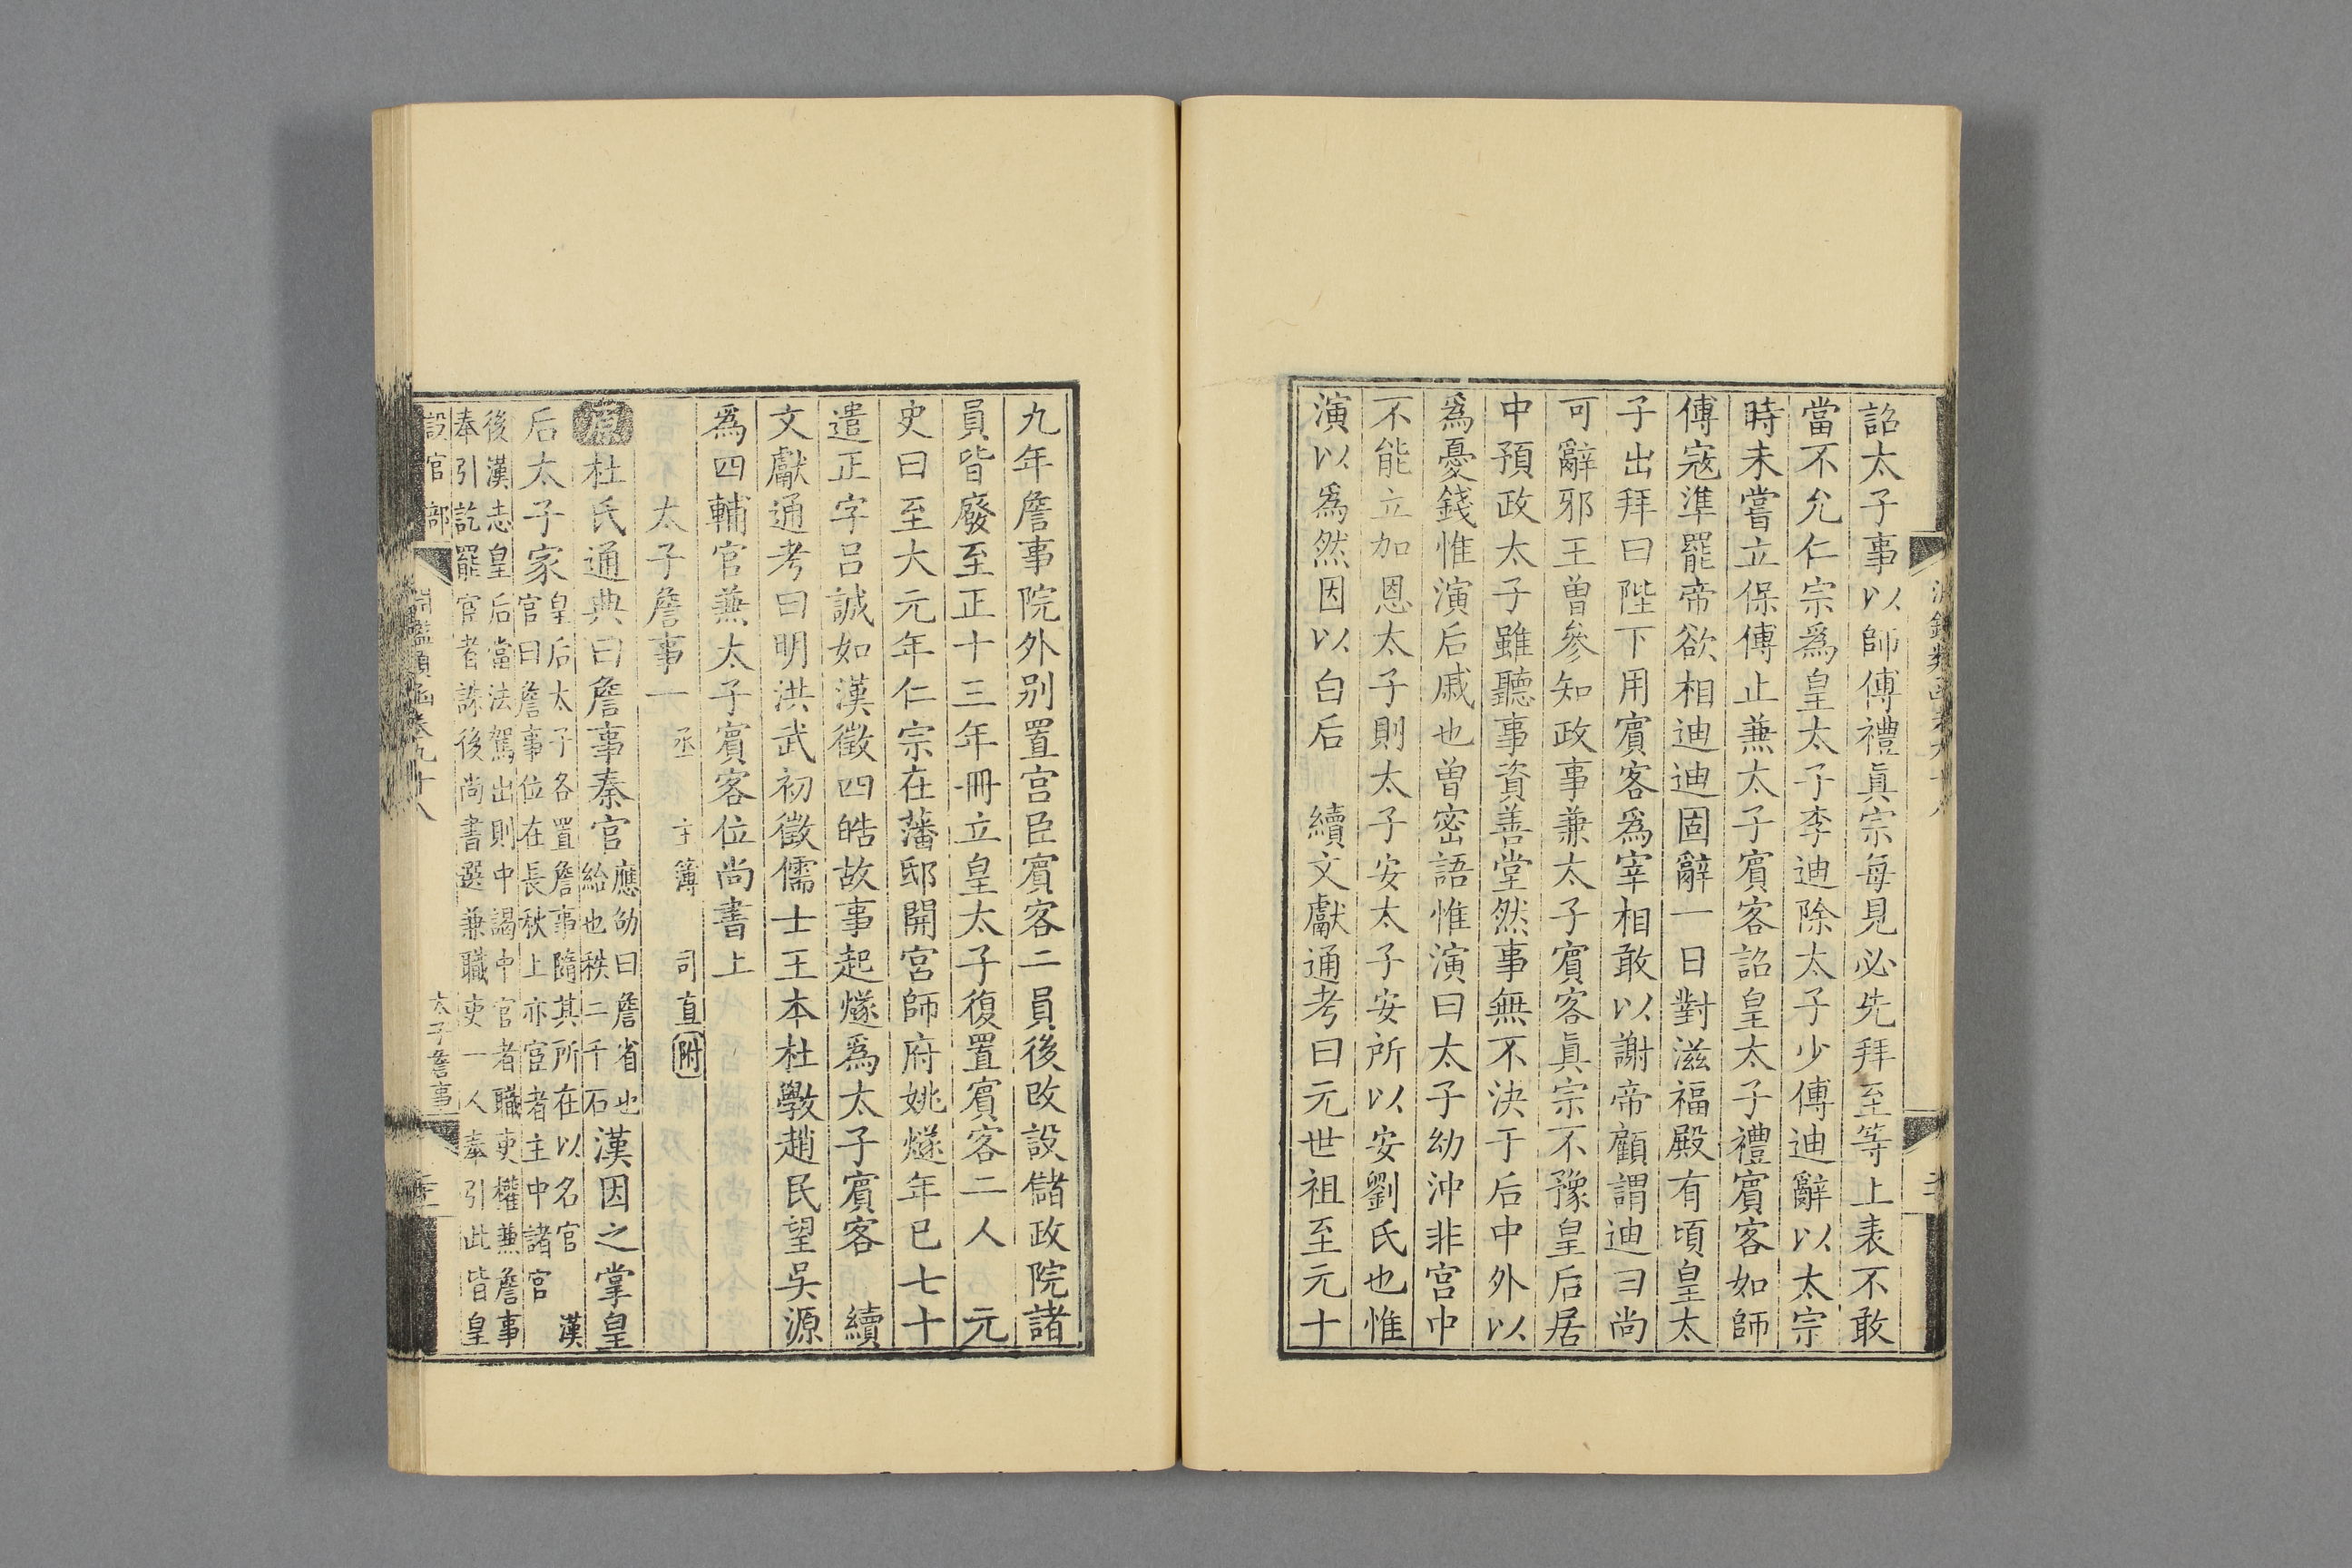 詔太子事以師傅禮眞宗每見必先拜至等上表不敢
當不允仁宗爲皇太子李迪除太子少傅迪辭以太宗
時未嘗立保傅止兼太子賓客詔皇太子禮賓客如師
傅寇準罷帝欲相迪迪固辭一日對滋福殿有頃皇太
子出拜曰陛下用賓客爲宰相敢以謝帝顧謂迪曰尚
可辭邪王曾參知政事兼太子賓客眞宗不豫皇后居
中預政太子雖聽事資善堂然事無不決于后中外以
爲憂錢惟演后戚也曾密語惟演曰太子幼沖非宮中
不能立加恩太子則太子安太子安所以安劉氏也惟
演以爲然因以白后 續文獻通考曰元世祖至元十
九年詹事院外别置宮臣賓客二員後改設儲政院諸
員皆廢至正十三年冊立皇太子復置賓客二人 元
史曰至大元年仁宗在藩邸開宮師府姚燧年已七十
遣正字呂誠如漢徵四皓故事起燧爲太子賓客 續
文獻通考曰明洪武初徵儒士王本杜斆趙民望吳源
爲四輔官兼太子賓客位尚書上
太子詹事一 丞 主簿 司直附
原杜氏通典曰詹事秦官應劭曰詹省也給也秩二千石漢因之掌皇
后太子家皇后太子各置詹事隨其所在以名官 漢官曰詹事位在長秋上亦宦者主中諸官
後漢志皇后當法駕出則中謁中官者職吏權兼詹事奉引訖罷宦者誅後尚書選兼職吏一人奉引此皆皇
設官部 淵鑑類函卷九十八 太子詹事